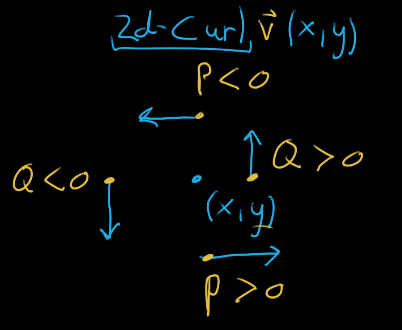 2d-Curl v⃗ (x,y)
P<0
Q>0
Q<0
(x,y)
P>0